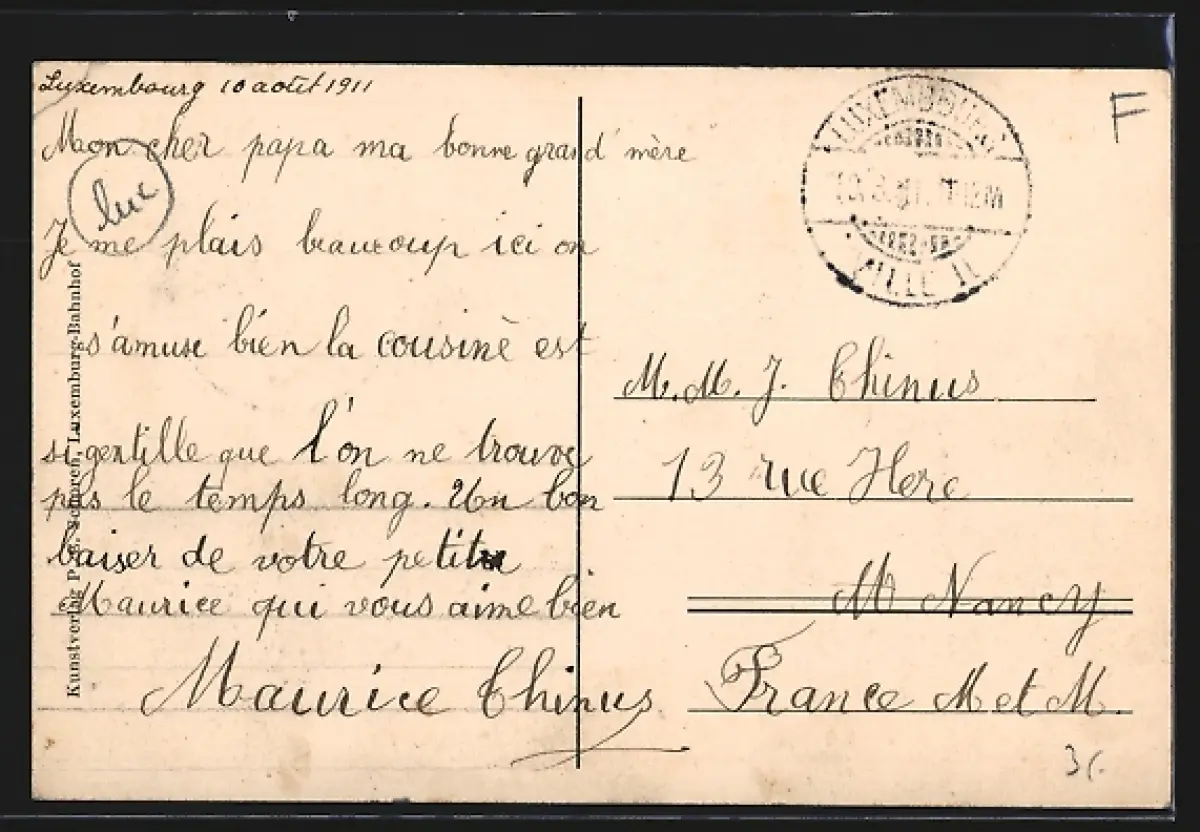 Luxembourg 10 août 1911
Mon cher papa ma bonne grand'mère
Je me plais beaucoup ici on
s'amuse bien la cousine est
si gentille que l'on ne trouve
pas le temps long. Un bon
baiser de votre petit
Maurice qui vous aime bien
Maurice Thinus
luc
Kunstverlag Schaaren, Luxemburg-Bahnhof
LUXEMBOURG
VILLE
F
M. M. J. Thinus
13 rue Heré
Nancy
France M et M.